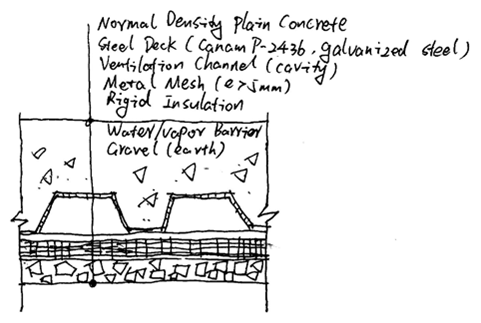 Normal Density Plain Concrete
Steel Deck (Canam P-2436, galvanized steel)
Ventilation Channel (cavity)
Metal Mesh (e>5mm)
Rigid Insulation
Water/vapor Barrier
Gravel (earth)